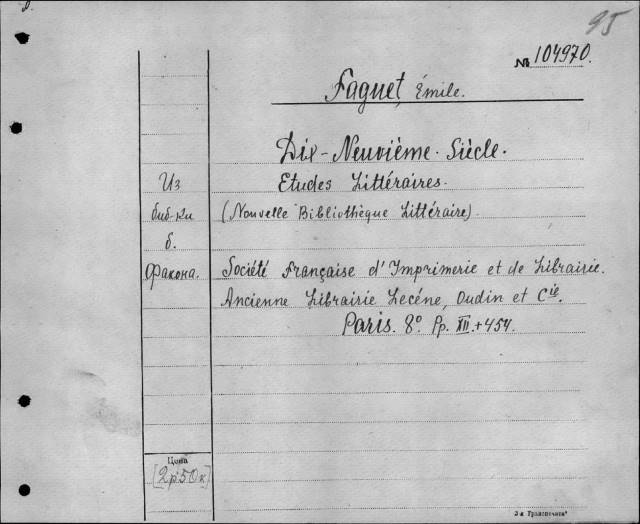 95
№ 104970.
Faguet, Émile.
Dix-Neuvième. Siècle.
Из Etudes Littéraires.
биб-ки (Nouvelle Bibliothèque Littéraire).
б.
Факона. Société Française d'Imprimerie et de Librairie.
Ancienne Librairie Lecéne, Oudin et Cie.
Paris. 8º Pp. XII.+454.
Цена
[2р50к]
3-я Транспечать"